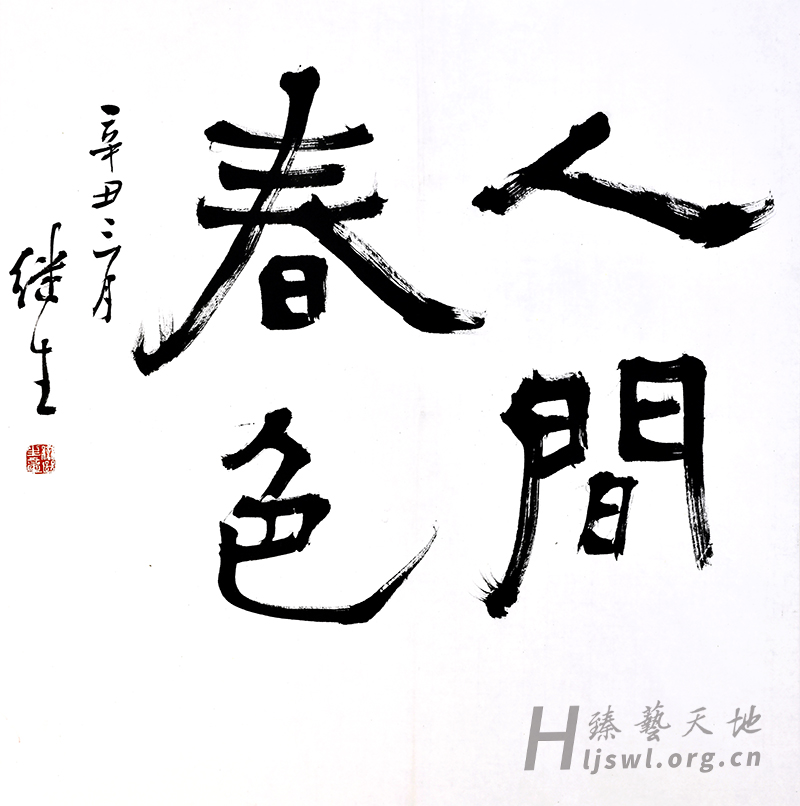 人間
春色
辛丑三月
继生
臻藝天地
Hljswl.org.cn